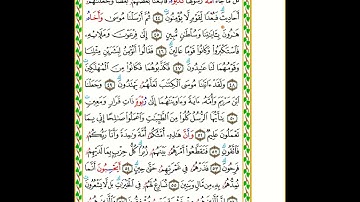 كُلَّ مَا جَآءَ أُمَّةً رَّسُولُهَا كَذَّبُوهُ فَأَتْبَعْنَا بَعْضَهُم بَعْضًا وَجَعَلْنَٰهُمْ
أَحَادِيثَ فَبُعْدًا لِّقَوْمٍ لَّا يُؤْمِنُونَ ٤٤ ثُمَّ أَرْسَلْنَا مُوسَىٰ وَأَخَاهُ
هَٰرُونَ بِـَٔايَٰتِنَا وَسُلْطَٰنٍ مُّبِينٍ ٤٥ إِلَىٰ فِرْعَوْنَ وَمَلَإِي۟هِۦ
فَٱسْتَكْبَرُوا۟ وَكَانُوا۟ قَوْمًا عَالِينَ ٤٦ فَقَالُوٓا۟ أَنُؤْمِنُ لِبَشَرَيْنِ مِثْلِنَا
وَقَوْمُهُمَا لَنَا عَٰبِدُونَ ٤٧ فَكَذَّبُوهُمَا فَكَانُوا۟ مِنَ ٱلْمُهْلَكِينَ
٤٨ وَلَقَدْ ءَاتَيْنَا مُوسَى ٱلْكِتَٰبَ لَعَلَّهُمْ يَهْتَدُونَ ٤٩ وَجَعَلْنَا
ٱبْنَ مَرْيَمَ وَأُمَّهُۥٓ ءَايَةً وَءَاوَيْنَٰهُمَآ إِلَىٰ رَبْوَةٍ ذَاتِ قَرَارٍ وَمَعِينٍ
٥٠ يَٰٓأَيُّهَا ٱلرُّسُلُ كُلُوا۟ مِنَ ٱلطَّيِّبَٰتِ وَٱعْمَلُوا۟ صَٰلِحًا إِنِّى بِمَا
تَعْمَلُونَ عَلِيمٌ ٥١ وَأَنَّ هَٰذِهِۦٓ أُمَّتُكُمْ أُمَّةً وَٰحِدَةً وَأَنَا۠ رَبُّكُمْ
فَٱتَّقُونِ ٥٢ فَتَقَطَّعُوٓا۟ أَمْرَهُم بَيْنَهُمْ زُبُرًا كُلُّ حِزْبٍۭ بِمَا لَدَيْهِمْ
فَرِحُونَ ٥٣ فَذَرْهُمْ فِى غَمْرَتِهِمْ حَتَّىٰ حِينٍ ٥٤ أَيَحْسِبُونَ أَنَّمَا
نُمِدُّهُم بِهِۦ مِن مَّالٍ وَبَنِينَ ٥٥ نُسَارِعُ لَهُمْ فِى ٱلْخَيْرَٰتِ بَل لَّا يَشْعُرُونَ